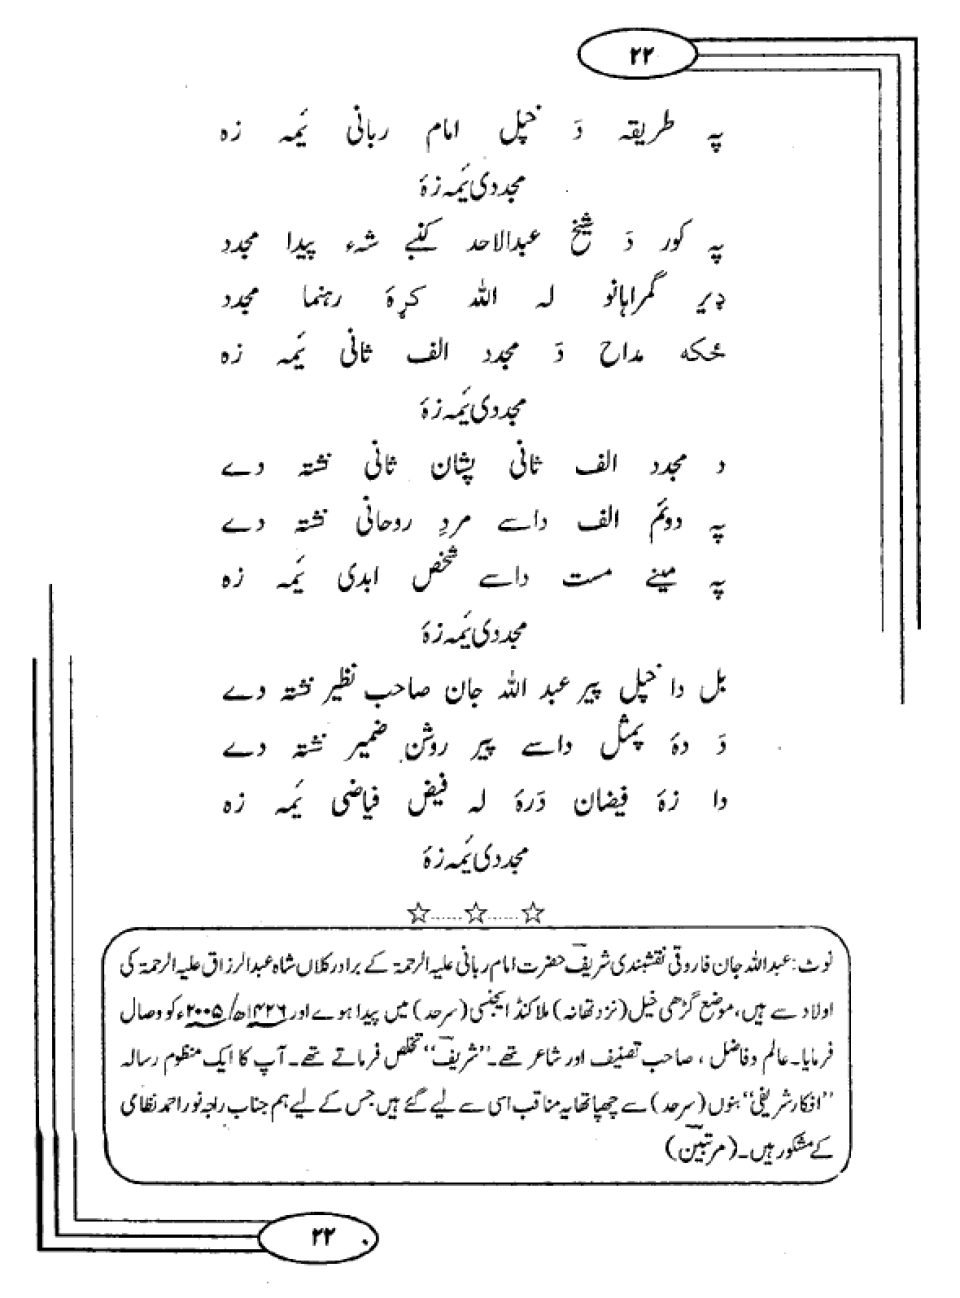 ۲۲
پہ طریقہ دَ خپل امام ربانی یَمہ زہ
مجددی یَمہ زۂ
پہ کور دَ شیخ عبدالاحد کنبے شہء پیدا مجدد
ډیر گمراہانو لہ اللہ کړۂ رہنما مجدد
ځکه مداح دَ مجدد الف ثانی یَمہ زہ
مجددی یَمہ زۂ
د مجدد الف ثانی پشان ثانی نشتہ دے
پہ دوئم الف داسے مردِ روحانی نشتہ دے
پہ مینے مست داسے شخص ابدی یَمہ زہ
مجددی یَمہ زۂ
بل دا خپل پیر عبد اللہ جان صاحب نظیر نشتہ دے
دَ دۂ پمثل داسے پیر روشن ضمیر نشتہ دے
دا زۂ فیضان دَرۂ لہ فیض فیاضی یَمہ زہ
مجددی یَمہ زۂ
☆......☆......☆
نوٹ: عبداللہ جان فاروقی نقشبندی شریف حضرت امام ربانی علیہ الرحمۃ کے برادر کلاں شاہ عبدالرزاق علیہ الرحمۃ کی
اولاد سے ہیں، موضع گڑھی خیل (نزد تھانہ) ملاکنڈ ایجنسی (سرحد) میں پیدا ہوے اور ۱۴۲۶ھ/۲۰۰۵ء کو وصال
فرمایا۔ عالم و فاضل، صاحب تصنیف اور شاعر تھے۔ "شریف" تخلص فرماتے تھے۔ آپ کا ایک منظوم رسالہ
"افکار شریفی" بنوں (سرحد) سے چھپا تھا یہ مناقب اسی سے لیے گئے ہیں جس کے لیے ہم جناب راجہ نور احمد نظامی
کے مشکور ہیں۔ (مرتبین)
۲۲